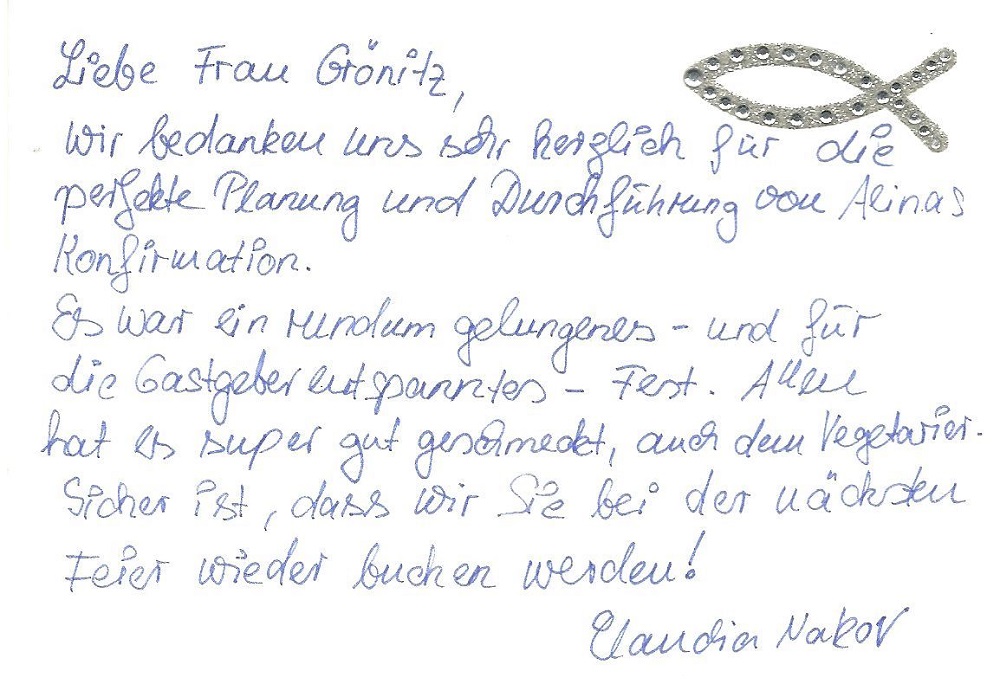 Liebe Frau Grönitz,
Wir bedanken uns sehr herzlich für die
perfekte Planung und Durchführung von Alinas
Konfirmation.
Es war ein rundum gelungenes - und für
die Gastgeber entspanntes - Fest. Allen
hat es super gut geschmeckt, auch dem Vegetarier.
Sicher ist, dass wir Sie bei der nächsten
Feier wieder buchen werden!
Claudia Nakov